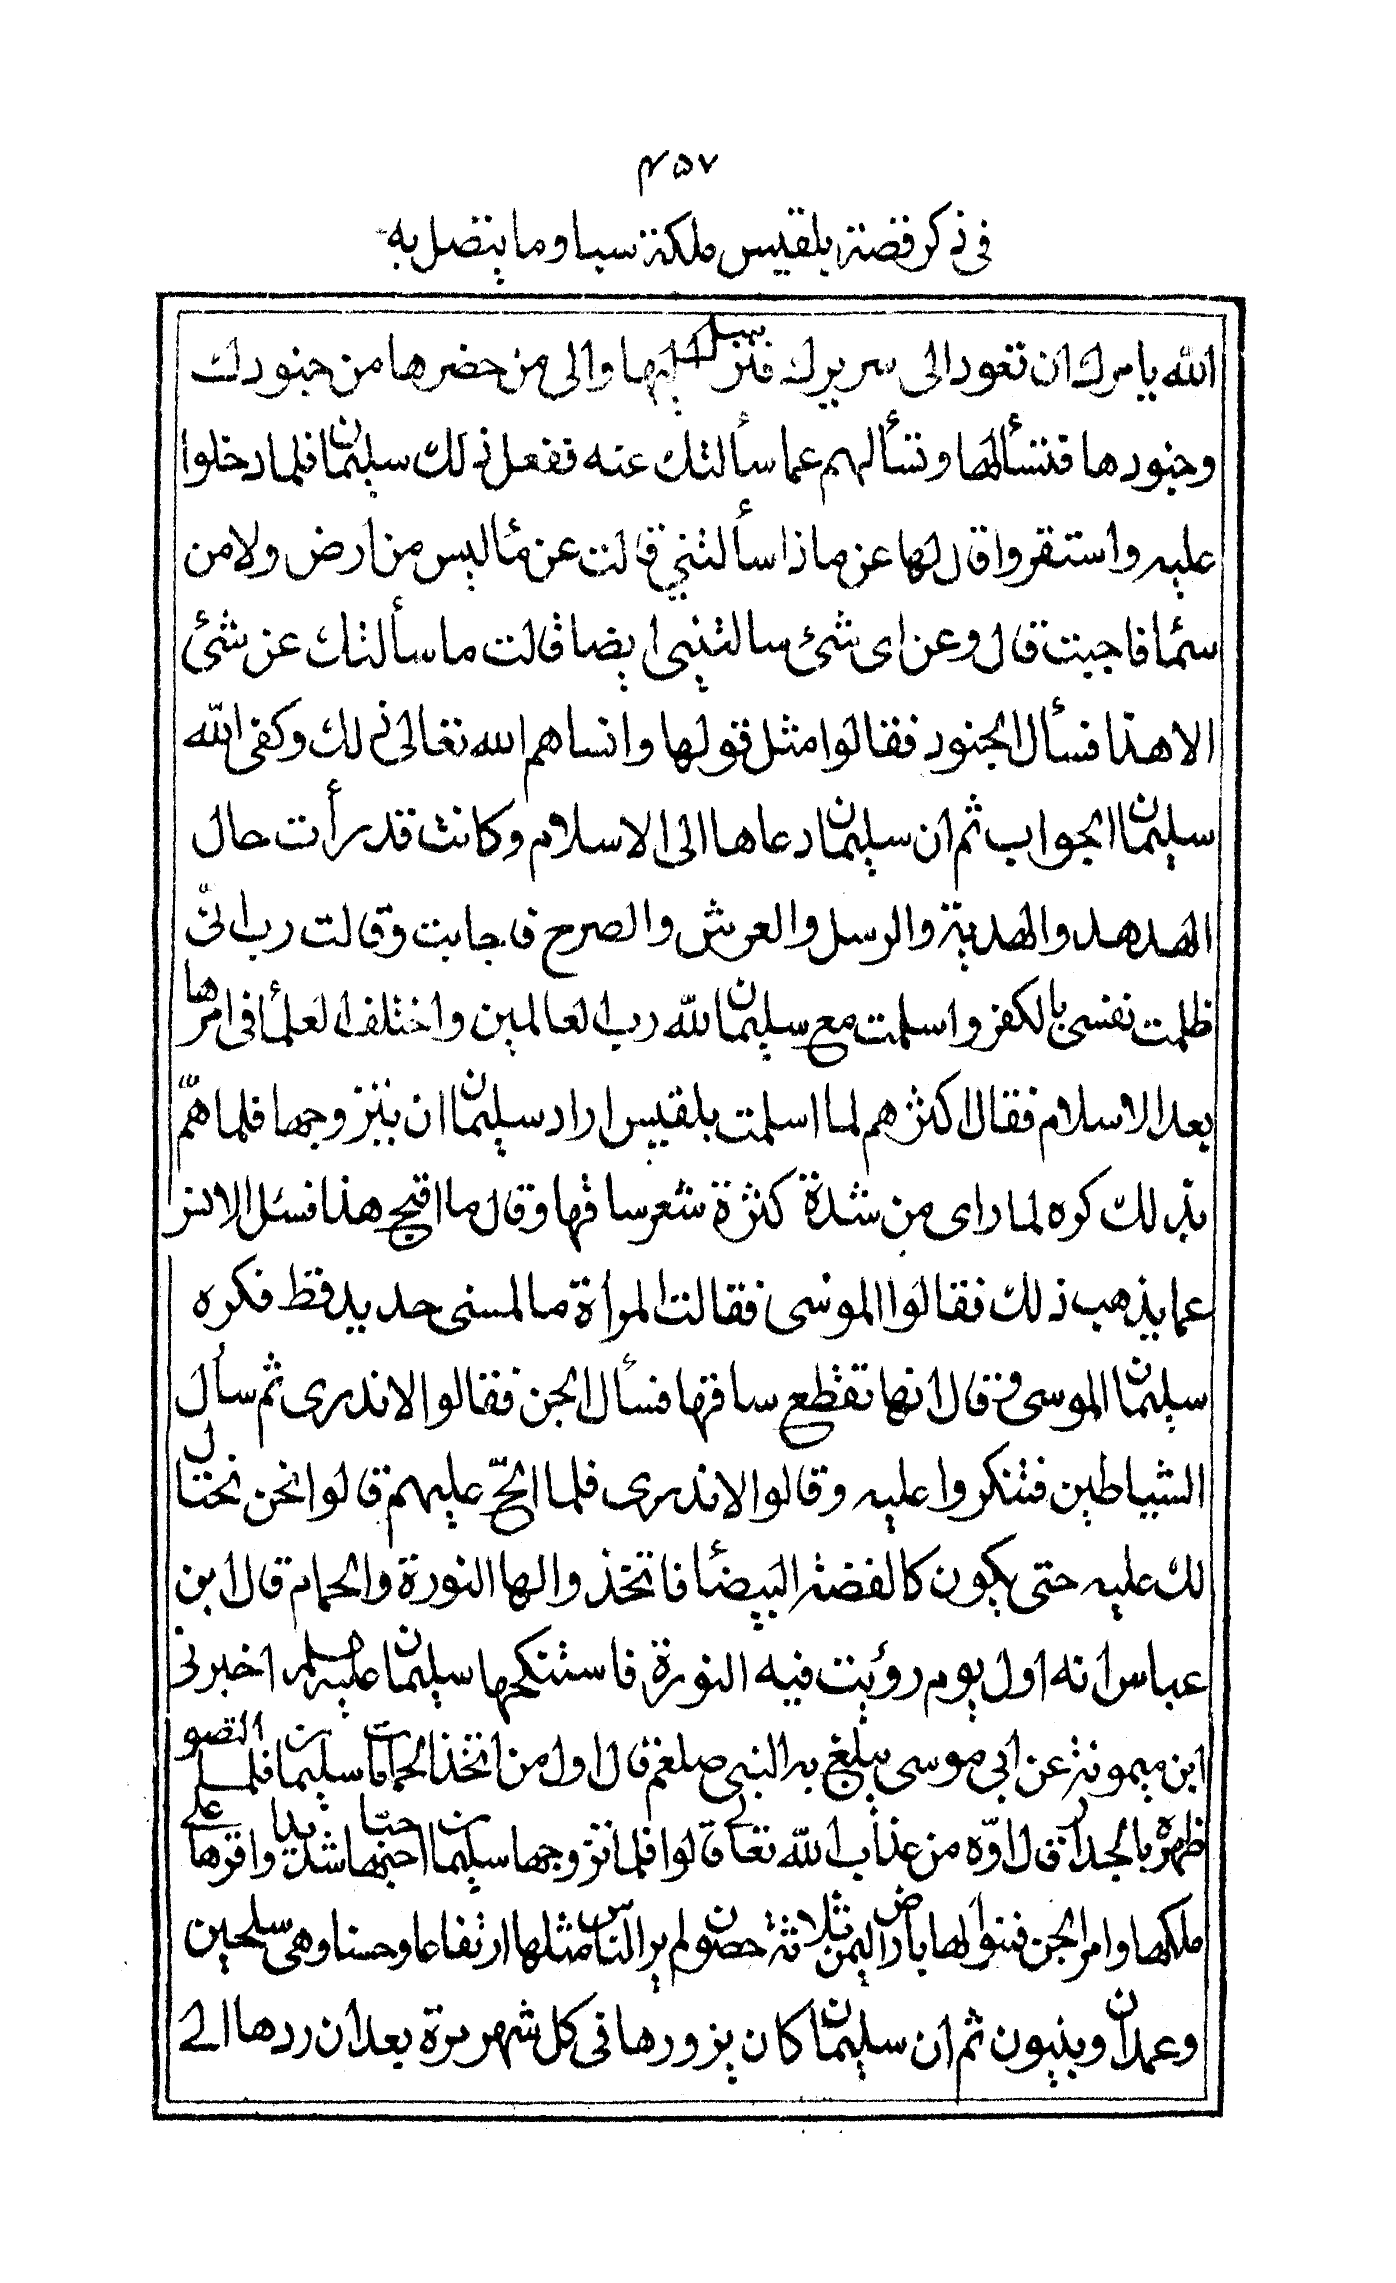 ۴۵۷
فی ذکر قصة بلقیس ملکة سبا و ما یتصل به
الله یامرك ان تعود الی سریرك فترسل الیها والی من حضرها من جنودك
وجنودها فتسألها وتسألهم عما سألتك عنه ففعل ذلك سلیمان فلما دخلوا
علیه واستقروا قال لها عن ماذا سألتنی قالت عن مآ لیس من ارض ولا من
سمآ فاجبت قال وعن ای شئ سالتینی ایضا قالت ما سألتك عن شئ
الا هذا فسأل الجنود فقالوا مثل قولها وانساهم الله تعالی ذلك وكفی الله
سلیمان الجواب ثم ان سلیمان دعاها الی الاسلام وكانت قد رأت حال
الهدهد والهدیة والرسل والعرش والصرح فاجابت وقالت رب انّی
ظلمت نفسی بالكفر واسلمت مع سلیمان لله رب العالمین واختلف العلمآ فی امرها
بعد الاسلام فقال اكثرهم لما اسلمت بلقیس اراد سلیمان ان یتزوجها فلما همّ
بذلك كره لما رای من شدة كثرة شعر ساقها وقال ما اقبح هذا فسئل الانس
عما یذهب ذلك فقالوا الموسی فقالت المرأة ما لمسنی حدید قط فكره
سلیمان الموسی وقال انها تقطع ساقها فسأل الجن فقالوا لا ندری ثم سأل
الشیاطین فتنكروا علیه وقالوا لا ندری فلما الحّ علیهم قالوا نحن نحتال
لك علیه حتی یكون كالفضة البیضآ فاتخذوا لها النورة والحمام قال ابن
عباس انه اول یوم رؤیت فیه النورة فاستنكحها سلیمان علیه اخبرنی
ابن میمونة عن ابی موسی یبلغ به النبی صلعم قال اول من اتخذ الحمامات سلیمان فلما التصق
ظهره بالجدار قال اوّه من عذاب الله تعالی قالوا فلما تزوجها سلیمان احبها حبّا شدیدا واقرها علی
ملكها وامر الجن فبنوا لها بارض الیمن ثلاثة حصون لم یر الناس مثلها ارتفاعا وحسنا وهی سلحین
وعمدان وبنیون ثم ان سلیمان كان یزورها فی كل شهر مرة بعد ان ردها الی